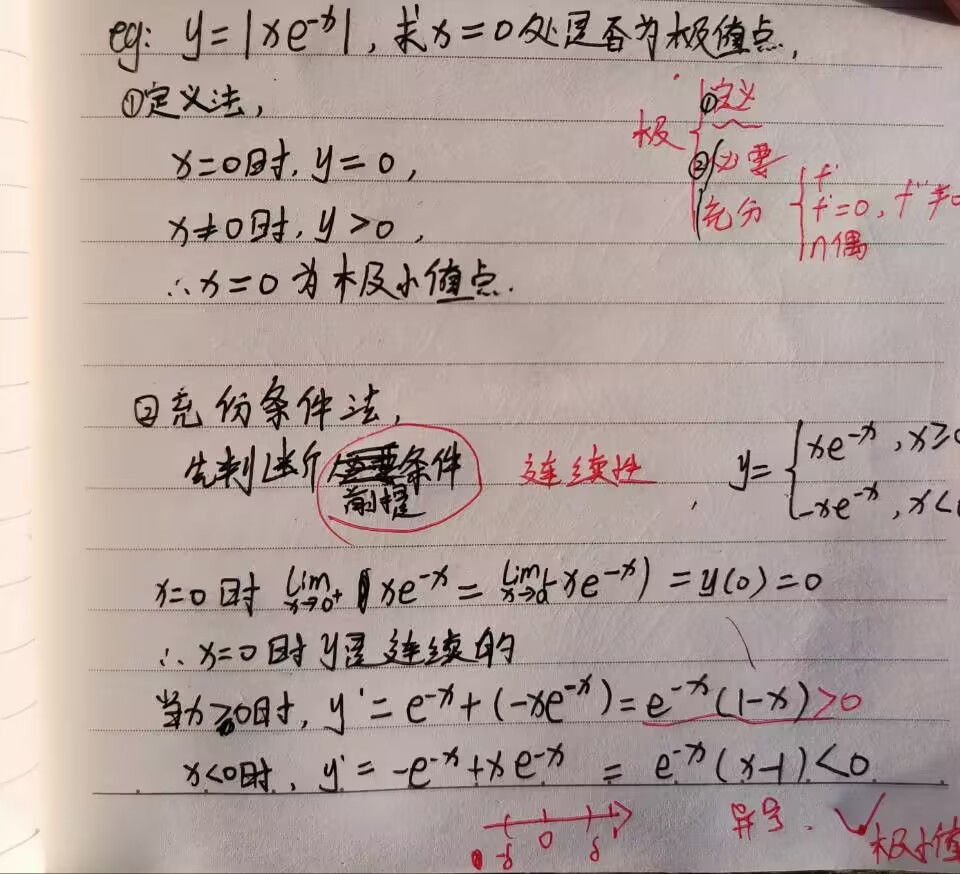 eg: y=|xe^{-x}|, 求x=0处是否为极值点,
①定义法,
x=0时, y=0,
x≠0时, y>0,
∴x=0为极小值点.
极 { ①定义
②必要
充分 { f'
f'=0, f''≠0
n偶
②充份条件法,
先判断 条件 连续性
前提
y= { xe^{-x}, x≥0
-xe^{-x}, x<0
x=0时 lim_{x→0⁺} (xe^{-x} = lim_{x→0⁻} -xe^{-x}) = y(0)=0
∴x=0时y是连续的
当x≥0时, y'=e^{-x}+(-xe^{-x})=e^{-x}(1-x)>0
x<0时, y'=-e^{-x}+xe^{-x} = e^{-x}(x-1)<0
-δ 0 δ 异号. ✓极小值